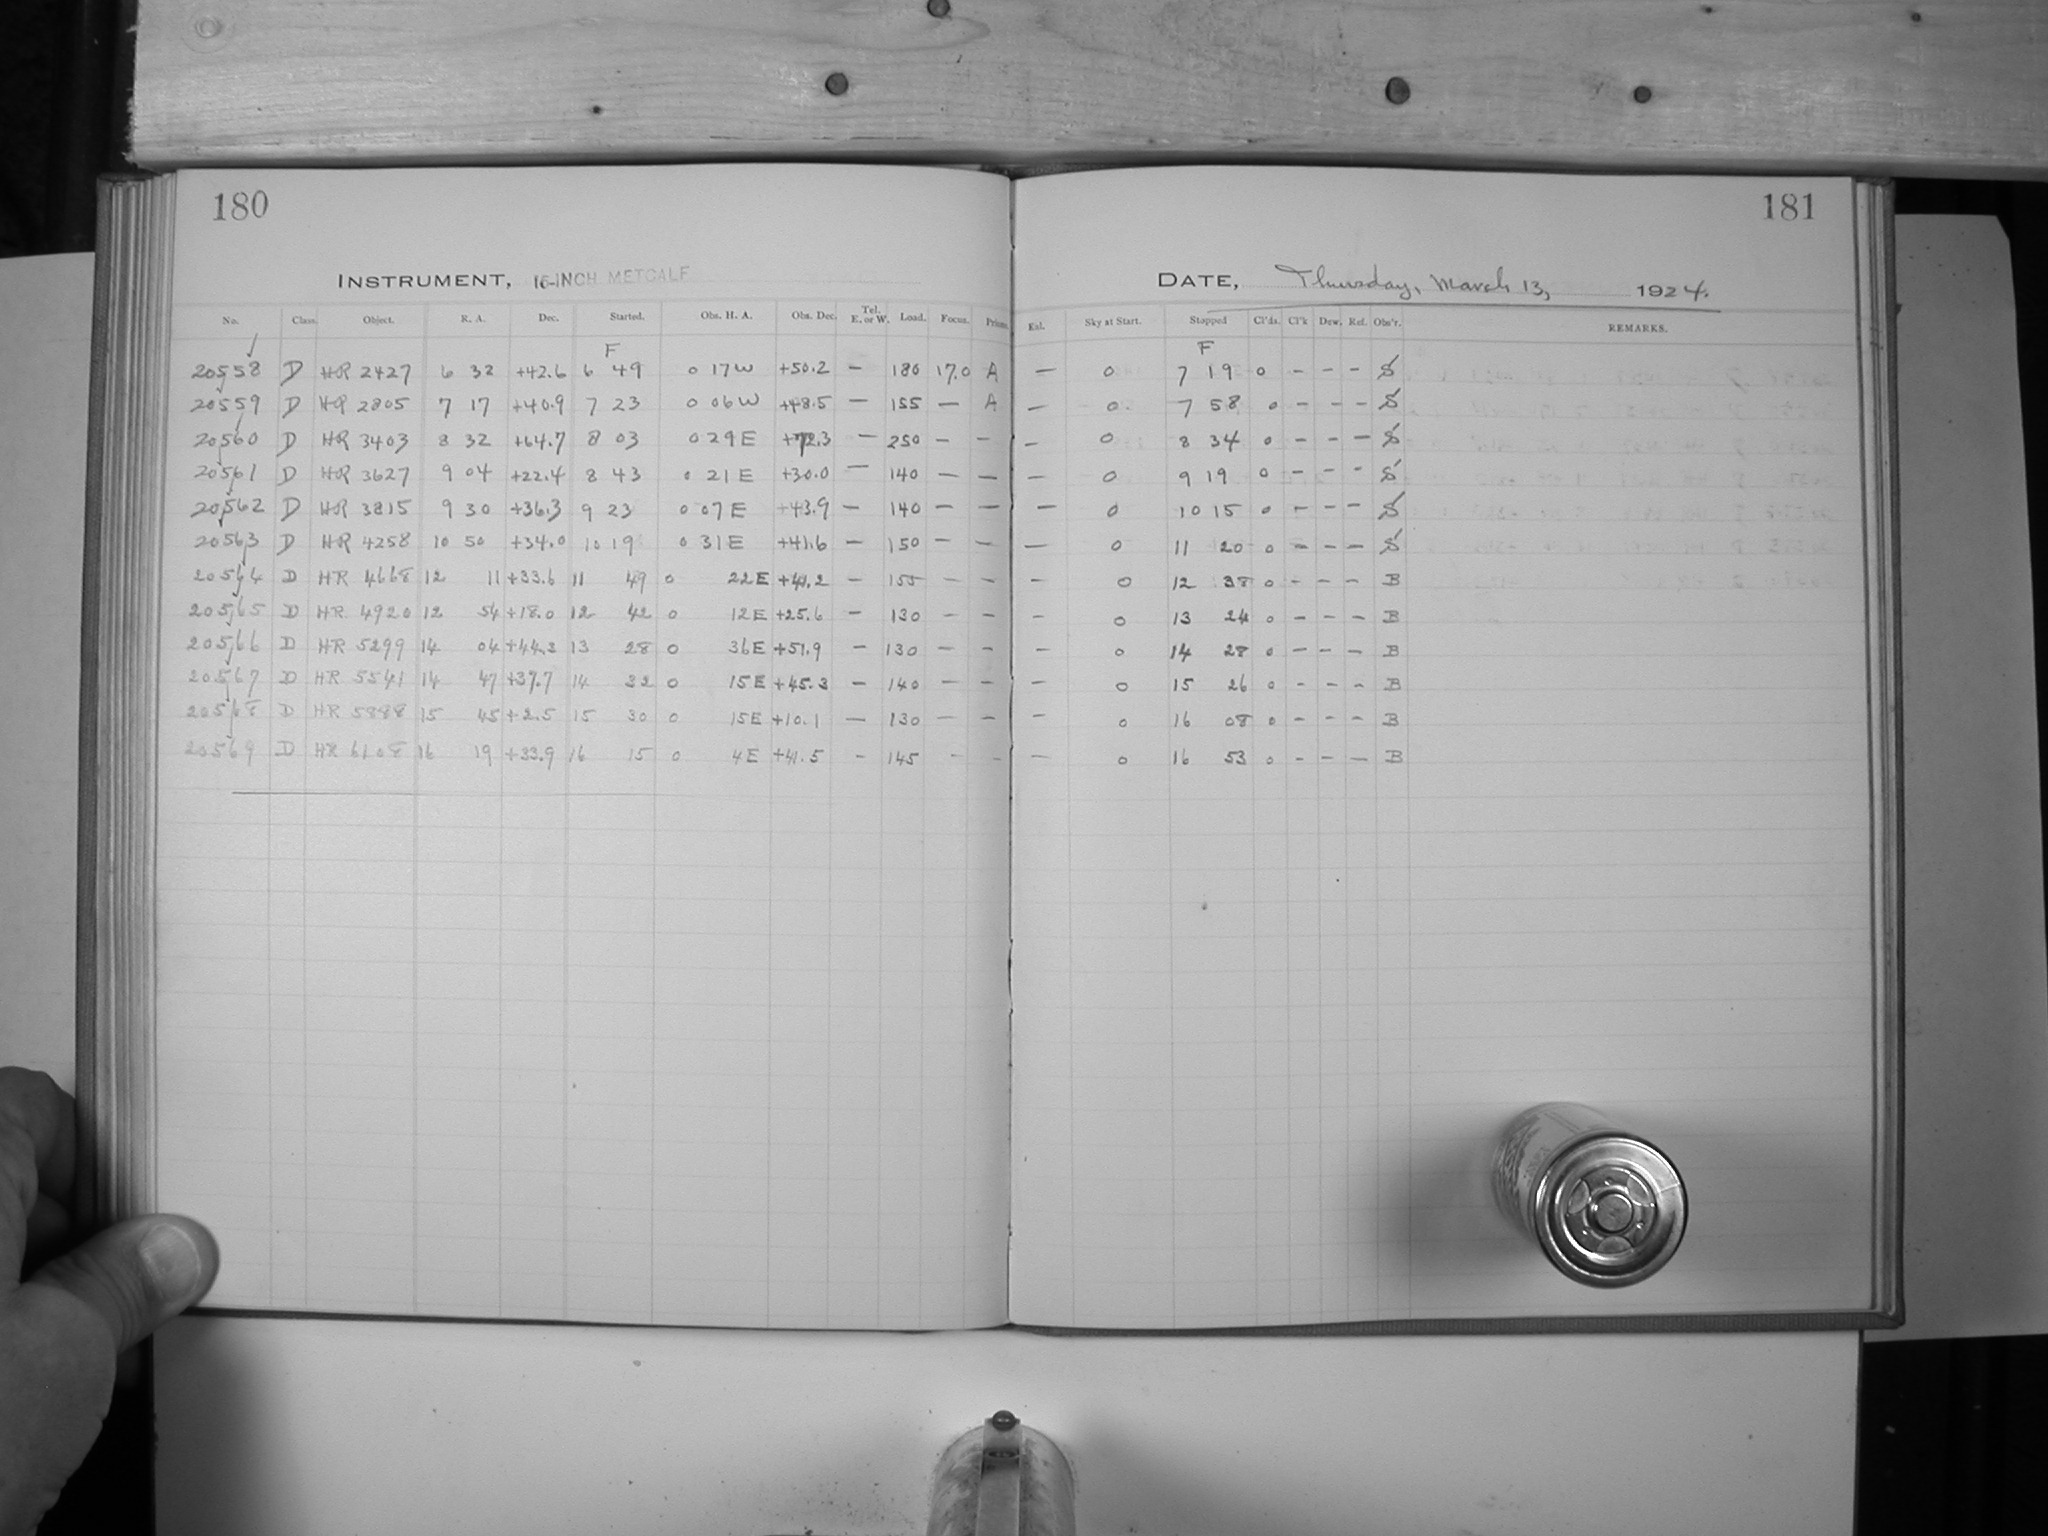 180
INSTRUMENT, 16-INCH METCALF
No. Class. Object. R. A. Dec. Started. Obs. H. A. Obs. Dec. Tel. E. or W. Load. Focus. Prism.
F
20558 D HR 2427 6 32 +42.6 6 49 0 17W +50.2 — 180 17.0 A
20559 D HR 2805 7 17 +40.9 7 23 0 06W +48.5 — 155 — A
20560 D HR 3403 8 32 +64.7 8 03 0 29E +72.3 — 250 — —
20561 D HR 3627 9 04 +22.4 8 43 0 21E +30.0 — 140 — —
20562 D HR 3815 9 30 +36.3 9 23 0 07E +43.9 — 140 — —
20563 D HR 4258 10 50 +34.0 10 19 0 31E +41.6 — 150 — —
20564 D HR 4668 12 11 +33.6 11 49 0 22E +41.2 — 155 — —
20565 D HR 4920 12 54 +18.0 12 42 0 12E +25.6 — 130 — —
20566 D HR 5299 14 04 +44.2 13 28 0 36E +51.9 — 130 — —
20567 D HR 5541 14 47 +37.7 14 32 0 15E +45.3 — 140 — —
20568 D HR 5888 15 45 +2.5 15 30 0 15E +10.1 — 130 — —
20569 D HR 6108 16 19 +33.9 16 15 0 4E +41.5 — 145 — —
181
DATE, Thursday, March 13, 1924.
Sky at Start. Stopped Cl'ds. Cl'k Dew. Ref. Obs'r. REMARKS.
F
— 0 7 19 0 — — — S
— 0 7 58 0 — — — S
— 0 8 34 0 — — — S
— 0 9 19 0 — — — S
— 0 10 15 0 — — — S
— 0 11 20 0 — — — S
— 0 12 38 0 — — — B
— 0 13 24 0 — — — B
— 0 14 28 0 — — — B
— 0 15 26 0 — — — B
— 0 16 08 0 — — — B
— 0 16 53 0 — — — B